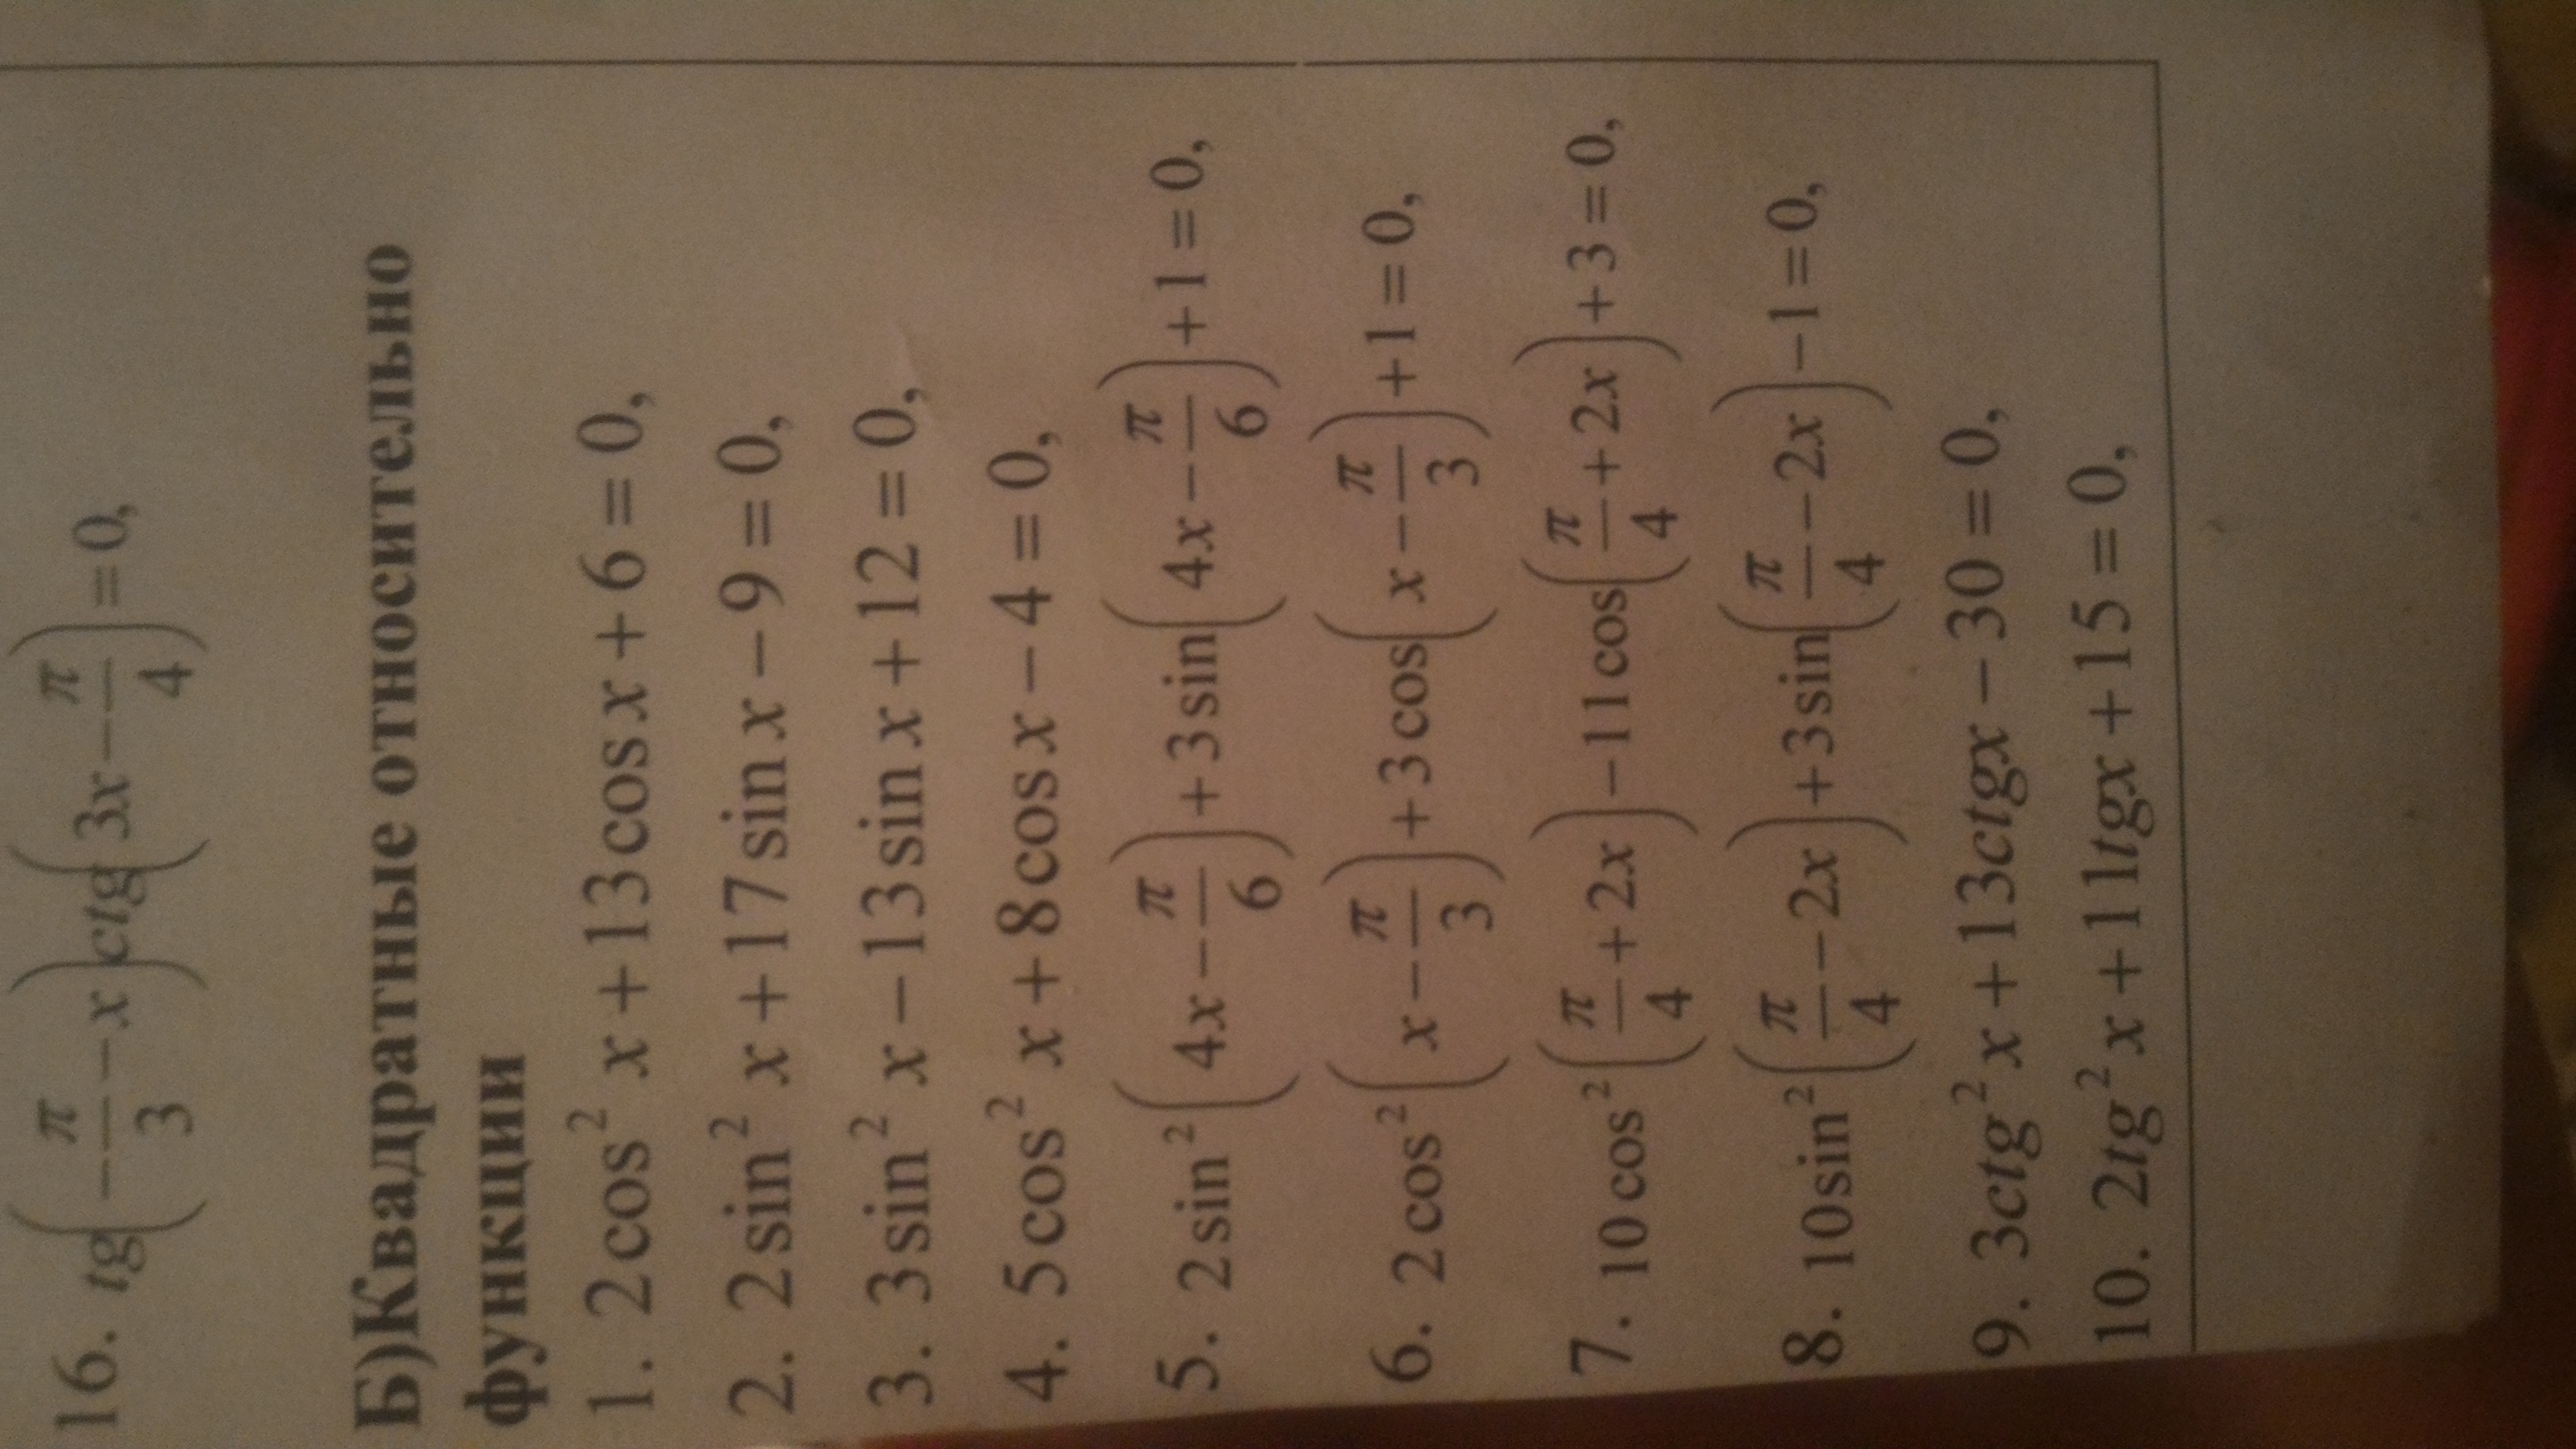 16. tg(π/3 − x)ctg(3x − π/4) = 0,
Б)Квадратные относительно
функции
1. 2cos² x + 13cos x + 6 = 0,
2. 2sin² x + 17sin x − 9 = 0,
3. 3sin² x − 13sin x + 12 = 0,
4. 5cos² x + 8cos x − 4 = 0,
5. 2sin²(4x − π/6) + 3sin(4x − π/6) + 1 = 0,
6. 2cos²(x − π/3) + 3cos(x − π/3) + 1 = 0,
7. 10cos²(π/4 + 2x) − 11cos(π/4 + 2x) + 3 = 0,
8. 10sin²(π/4 − 2x) + 3sin(π/4 − 2x) − 1 = 0,
9. 3ctg² x + 13ctgx − 30 = 0,
10. 2tg² x + 11tgx + 15 = 0,